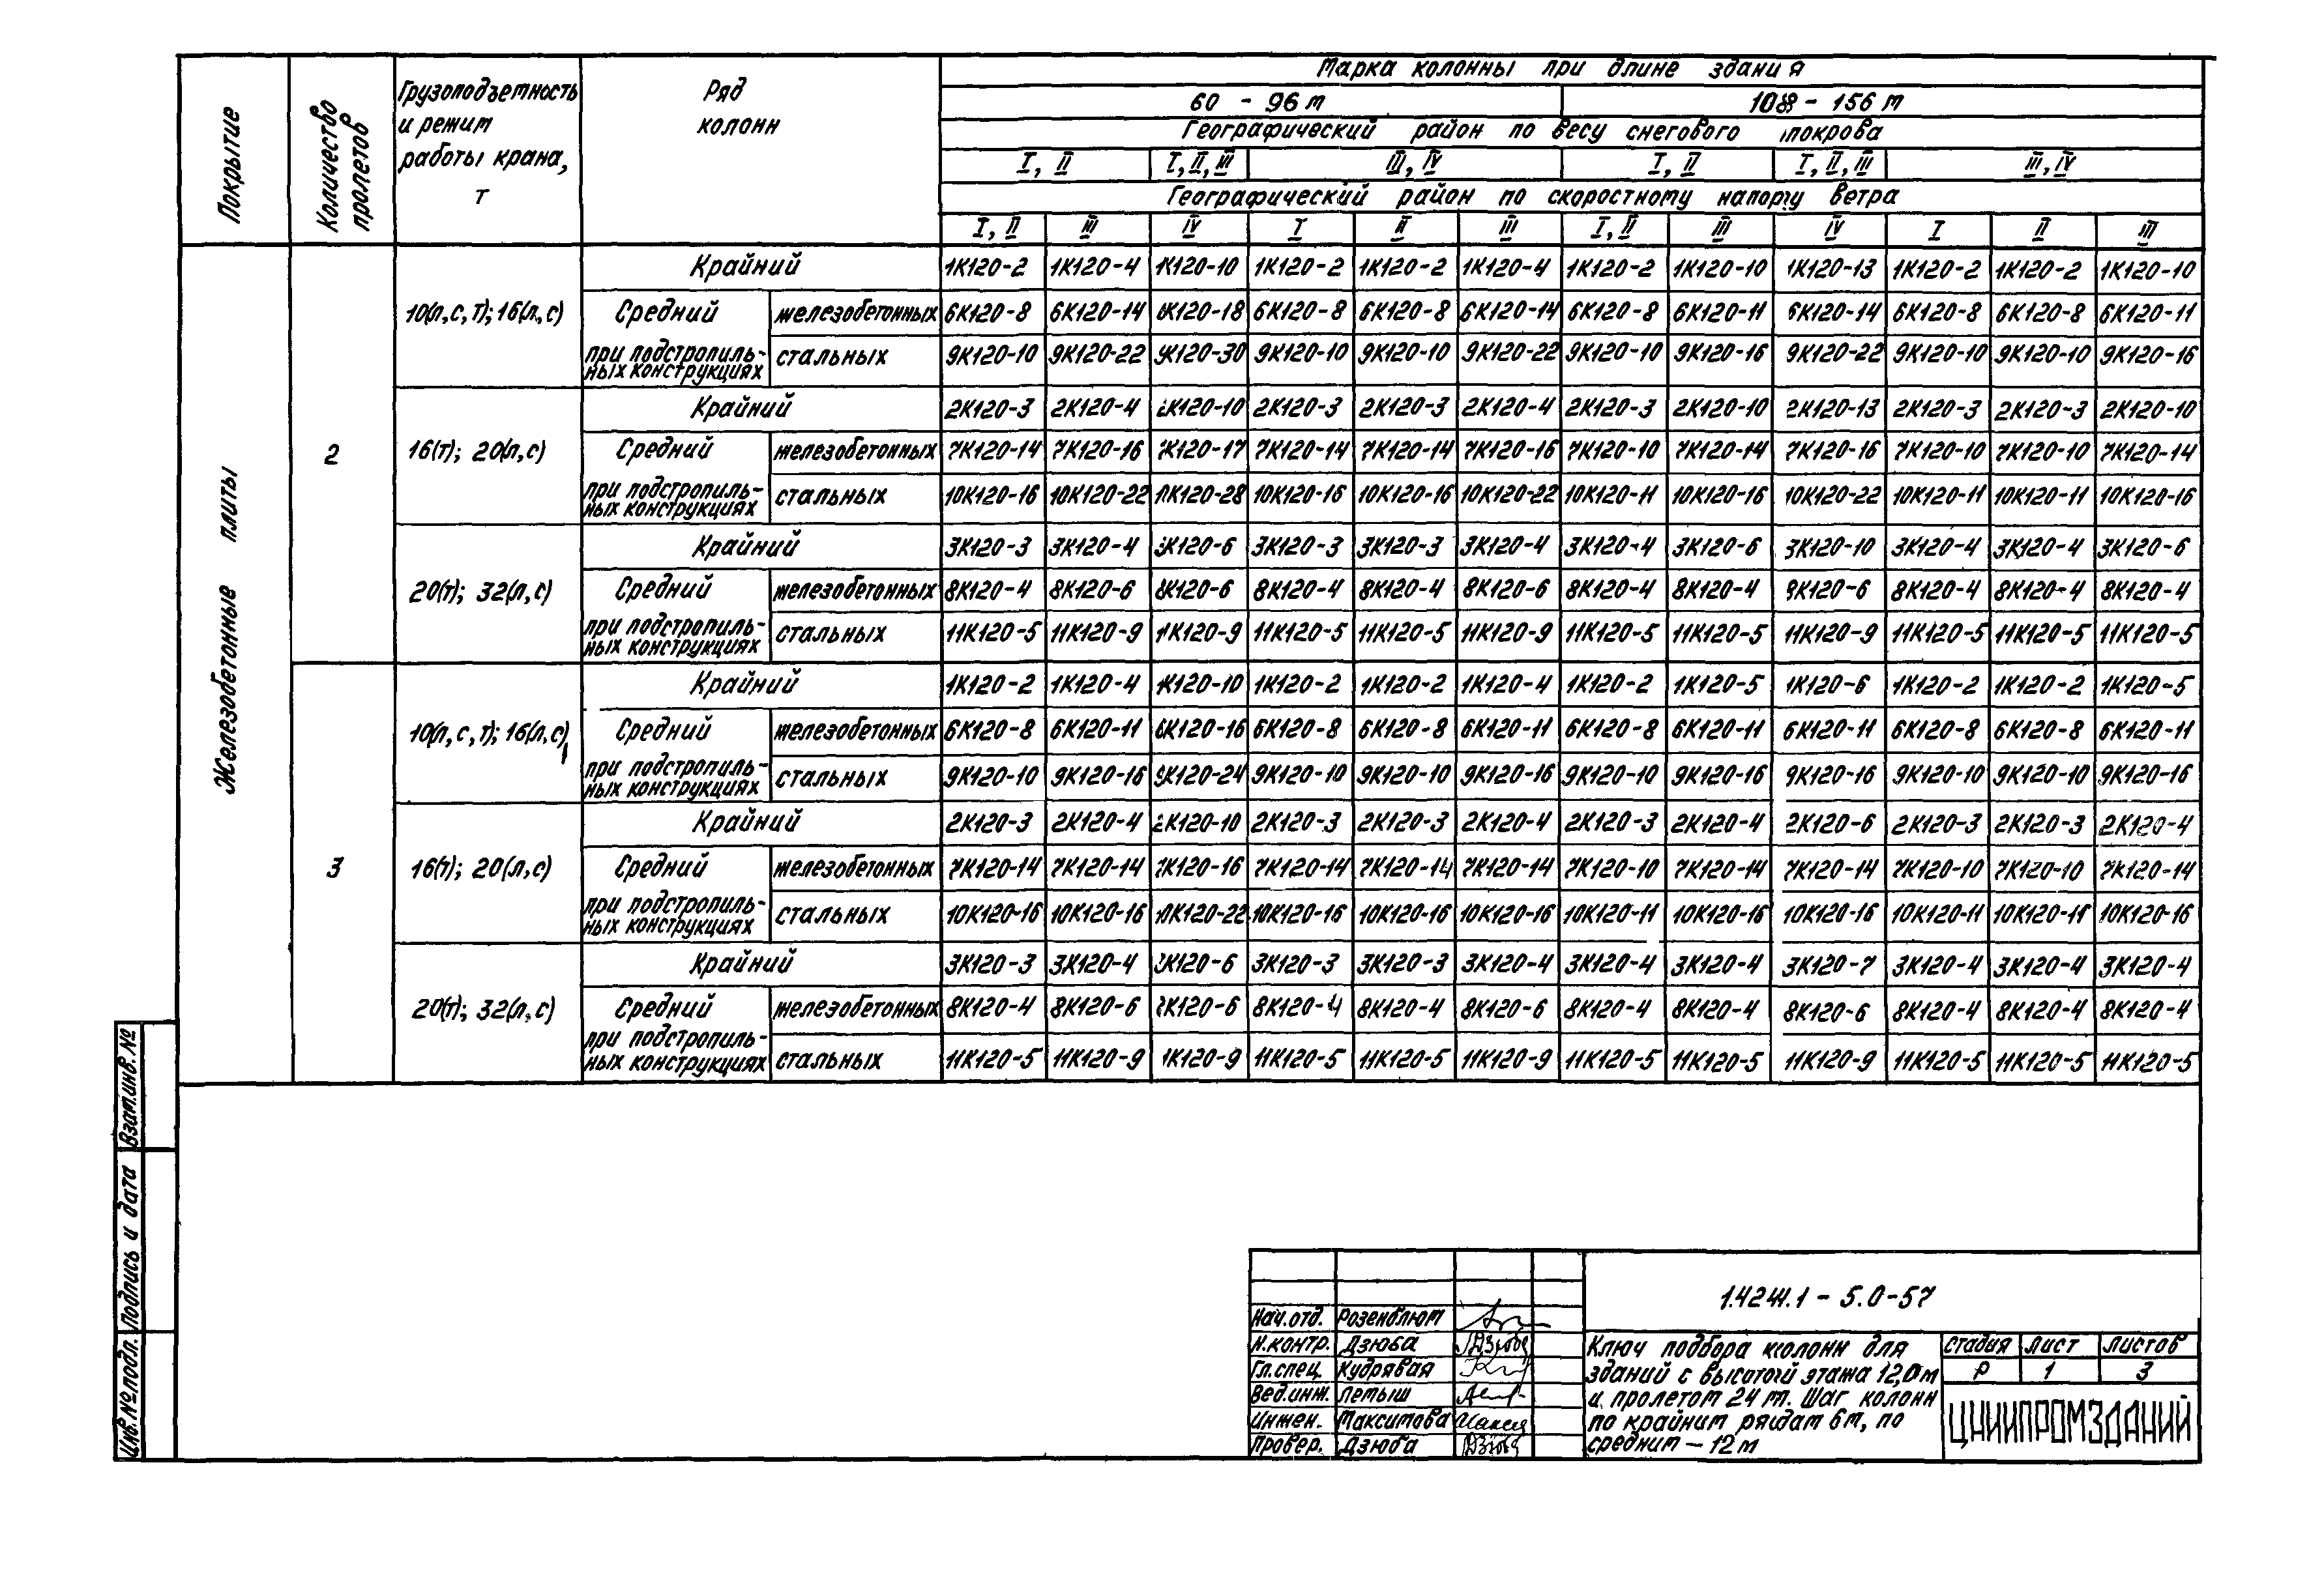 Марка колонны при длине здания
Покрытие
Количество пролетов
Грузоподъемность и режим работы крана, т
Ряд колонн
60 - 96 м
108 - 156 м
Географический район по весу снегового покрова
I, II I, II, III III, IV I, II I, II, III III, IV
Географический район по скоростному напору ветра
I, II III IV I II III I, II III IV I II III
Железобетонные плиты
2
10(л,с,т); 16(л,с)
Крайний 1К120-2 1К120-4 1К120-10 1К120-2 1К120-2 1К120-4 1К120-2 1К120-10 1К120-13 1К120-2 1К120-2 1К120-10
Средний железобетонных 6К120-8 6К120-14 6К120-18 6К120-8 6К120-8 6К120-14 6К120-8 6К120-11 6К120-14 6К120-8 6К120-8 6К120-11
при подстропиль-
ных конструкциях стальных 9К120-10 9К120-22 9К120-30 9К120-10 9К120-10 9К120-22 9К120-10 9К120-16 9К120-22 9К120-10 9К120-10 9К120-16
16(т); 20(л,с)
Крайний 2К120-3 2К120-4 2К120-10 2К120-3 2К120-3 2К120-4 2К120-3 2К120-10 2К120-13 2К120-3 2К120-3 2К120-10
Средний железобетонных 7К120-14 7К120-16 7К120-17 7К120-14 7К120-14 7К120-16 7К120-10 7К120-14 7К120-16 7К120-10 7К120-10 7К120-14
при подстропиль-
ных конструкциях стальных 10К120-16 10К120-22 10К120-28 10К120-16 10К120-16 10К120-22 10К120-11 10К120-16 10К120-22 10К120-11 10К120-11 10К120-16
20(т); 32(л,с)
Крайний 3К120-3 3К120-4 3К120-6 3К120-3 3К120-3 3К120-4 3К120-4 3К120-6 3К120-10 3К120-4 3К120-4 3К120-6
Средний железобетонных 8К120-4 8К120-6 8К120-6 8К120-4 8К120-4 8К120-6 8К120-4 8К120-4 8К120-6 8К120-4 8К120-4 8К120-4
при подстропиль-
ных конструкциях стальных 11К120-5 11К120-9 11К120-9 11К120-5 11К120-5 11К120-9 11К120-5 11К120-5 11К120-9 11К120-5 11К120-5 11К120-5
3
10(л,с,т); 16(л,с)
Крайний 1К120-2 1К120-4 1К120-10 1К120-2 1К120-2 1К120-4 1К120-2 1К120-5 1К120-6 1К120-2 1К120-2 1К120-5
Средний железобетонных 6К120-8 6К120-11 6К120-16 6К120-8 6К120-8 6К120-11 6К120-8 6К120-11 6К120-11 6К120-8 6К120-8 6К120-11
при подстропиль-
ных конструкциях стальных 9К120-10 9К120-16 9К120-24 9К120-10 9К120-10 9К120-16 9К120-10 9К120-16 9К120-16 9К120-10 9К120-10 9К120-16
16(т); 20(л,с)
Крайний 2К120-3 2К120-4 2К120-10 2К120-3 2К120-3 2К120-4 2К120-3 2К120-4 2К120-6 2К120-3 2К120-3 2К120-4
Средний железобетонных 7К120-14 7К120-14 7К120-16 7К120-14 7К120-14 7К120-14 7К120-10 7К120-14 7К120-14 7К120-10 7К120-10 7К120-14
при подстропиль-
ных конструкциях стальных 10К120-16 10К120-16 10К120-22 10К120-16 10К120-16 10К120-16 10К120-11 10К120-16 10К120-16 10К120-11 10К120-11 10К120-16
20(т); 32(л,с)
Крайний 3К120-3 3К120-4 3К120-6 3К120-3 3К120-3 3К120-4 3К120-4 3К120-4 3К120-7 3К120-4 3К120-4 3К120-4
Средний железобетонных 8К120-4 8К120-6 8К120-6 8К120-4 8К120-4 8К120-6 8К120-4 8К120-4 8К120-6 8К120-4 8К120-4 8К120-4
при подстропиль-
ных конструкциях стальных 11К120-5 11К120-9 11К120-9 11К120-5 11К120-5 11К120-9 11К120-5 11К120-5 11К120-9 11К120-5 11К120-5 11К120-5
Взам.инв.№
Подпись и дата
Инв.№подл.
1.424.1 - 5.0-57
Нач.отд. Розенблюм
Н.контр. Дзюба
Гл.спец. Кудрявая
Вед.инж. Летыш
Инжен. Максимова
Провер. Дзюба
Ключ подбора колонн для
зданий с высотой этажа 12,0м
и пролетом 24 м. Шаг колонн
по крайним рядам 6м, по
средним - 12 м
Стадия Лист Листов
Р 1 3
ЦНИИПРОМЗДАНИЙ